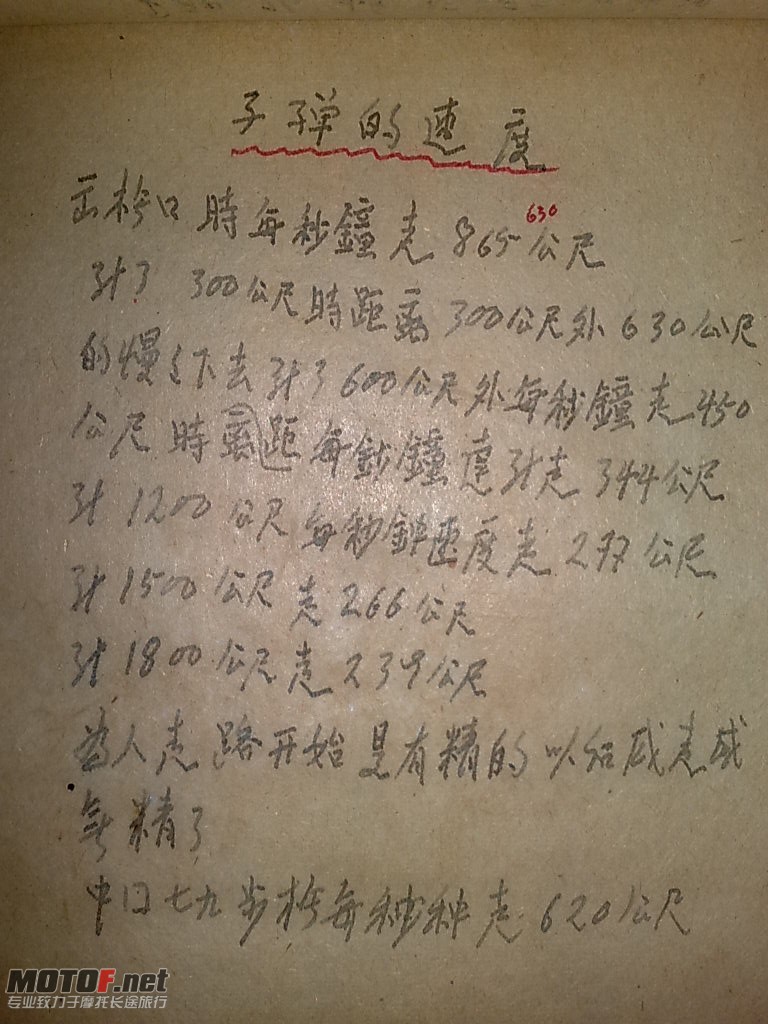 子弹的速度
出枪口時每秒鐘走865公尺
630
到了 300公尺時距离300公尺外630公尺
的慢之下去到了600公尺外每秒鐘走450
公尺時离距每鈔鐘達到走344公尺
到1200公尺每秒鈡速度走277公尺
到1500公尺走266公尺
到1800公尺走239公尺
為人走路开始是有精的以后咸走咸
無精了
中日七九步枪每秒种走620公尺
MOTOF.net
专业致力于摩托长途旅行